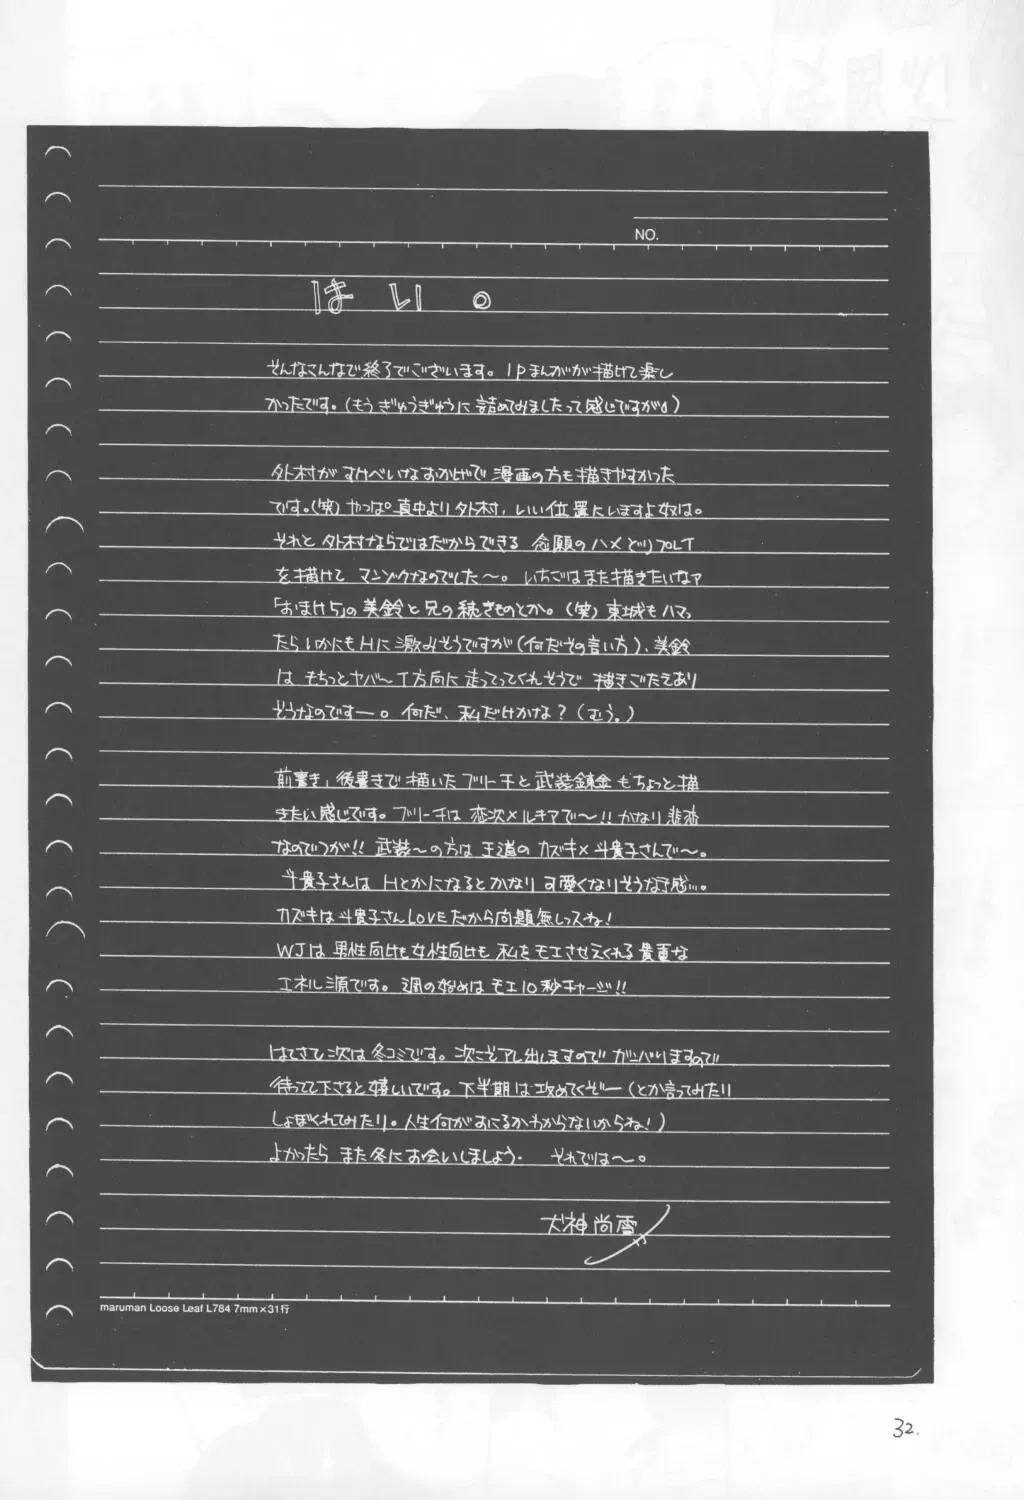 NO.
はい。
そんなこんなで終了でございます。1Pまんがが描けて楽し
かったです。(もうぎゅうぎゅうに詰めてみましたって感じですが。)
外村がすけべいなおかげで漫画の方も描きやすかった
です。(笑)やっぱ真中より外村、いい位置にいますよ奴は。
それと外村ならではだからできる念願のハメどりプレイ
を描けてマンゾクなのでした〜。いちごはまた描きたいなァ
「おまけ5」の美鈴と兄の続きものとか。(笑)東城もハマっ
たらいかにもHに激みそうですが(何だその言い方)、美鈴
はそちっとヤバ〜イ方向に走ってってくれそうで描きごたえあり
そうなのですー。何だ、私だけかな?(むう。)
前書き、後書きで描いたブリーチと武装錬金もちょっと描
きたい感じです。ブリーチは恋次×ルキアで〜!!かなり悲恋
なのでつが!!武装〜の方は王道のカズキ×斗貴子さんで〜。
斗貴子さんはHとかになるとかなり可愛くなりそうな予感…。
カズキは斗貴子さんLOVEだから問題無しっスね!
WJは男性向けも女性向けも私をモエさせてくれる貴重な
エネルギー源です。週の始めはモエ10秒チャージ!!
はてさて次は冬コミです。次こそアレ出しますのでガンバりますので
待ってて下さると嬉しいです。下半期は攻めてくぞー(とか言ってみたり
しょぼくれてみたり。人生何がおこるかわからないからね!)
よかったらまた冬にお会いしましょう。それでは〜。
犬神尚雪
maruman Loose Leaf L784 7mm×31行
32.